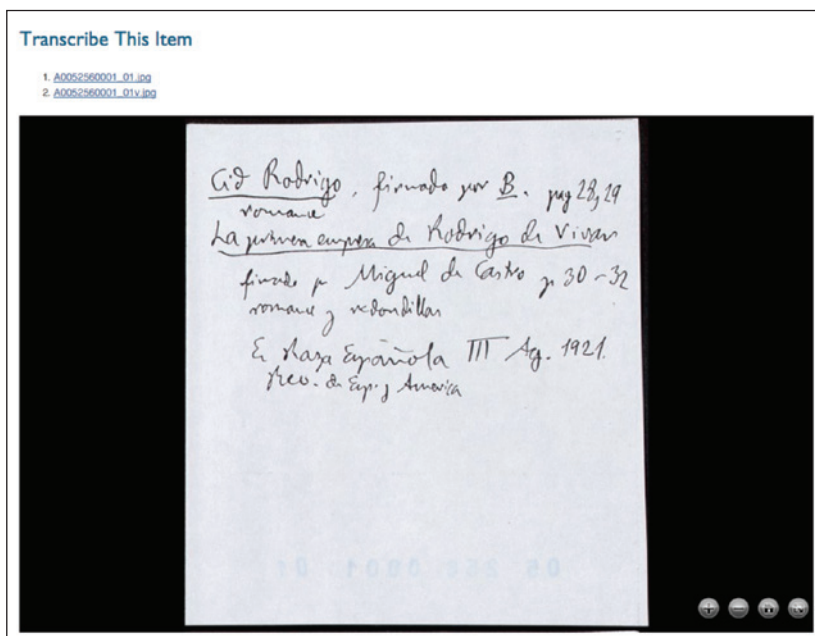 Transcribe This Item
1. A0052560001_01.jpg
2. A0052560001_01v.jpg
Cid Rodrigo, firmado por B. pag 28, 29
romance
La primera empresa de Rodrigo de Vivar
firmado p Miguel de Castro p 30-32
romance y redondillas
En Raza Española III Ag. 1921.
Rev. de Esp. y America